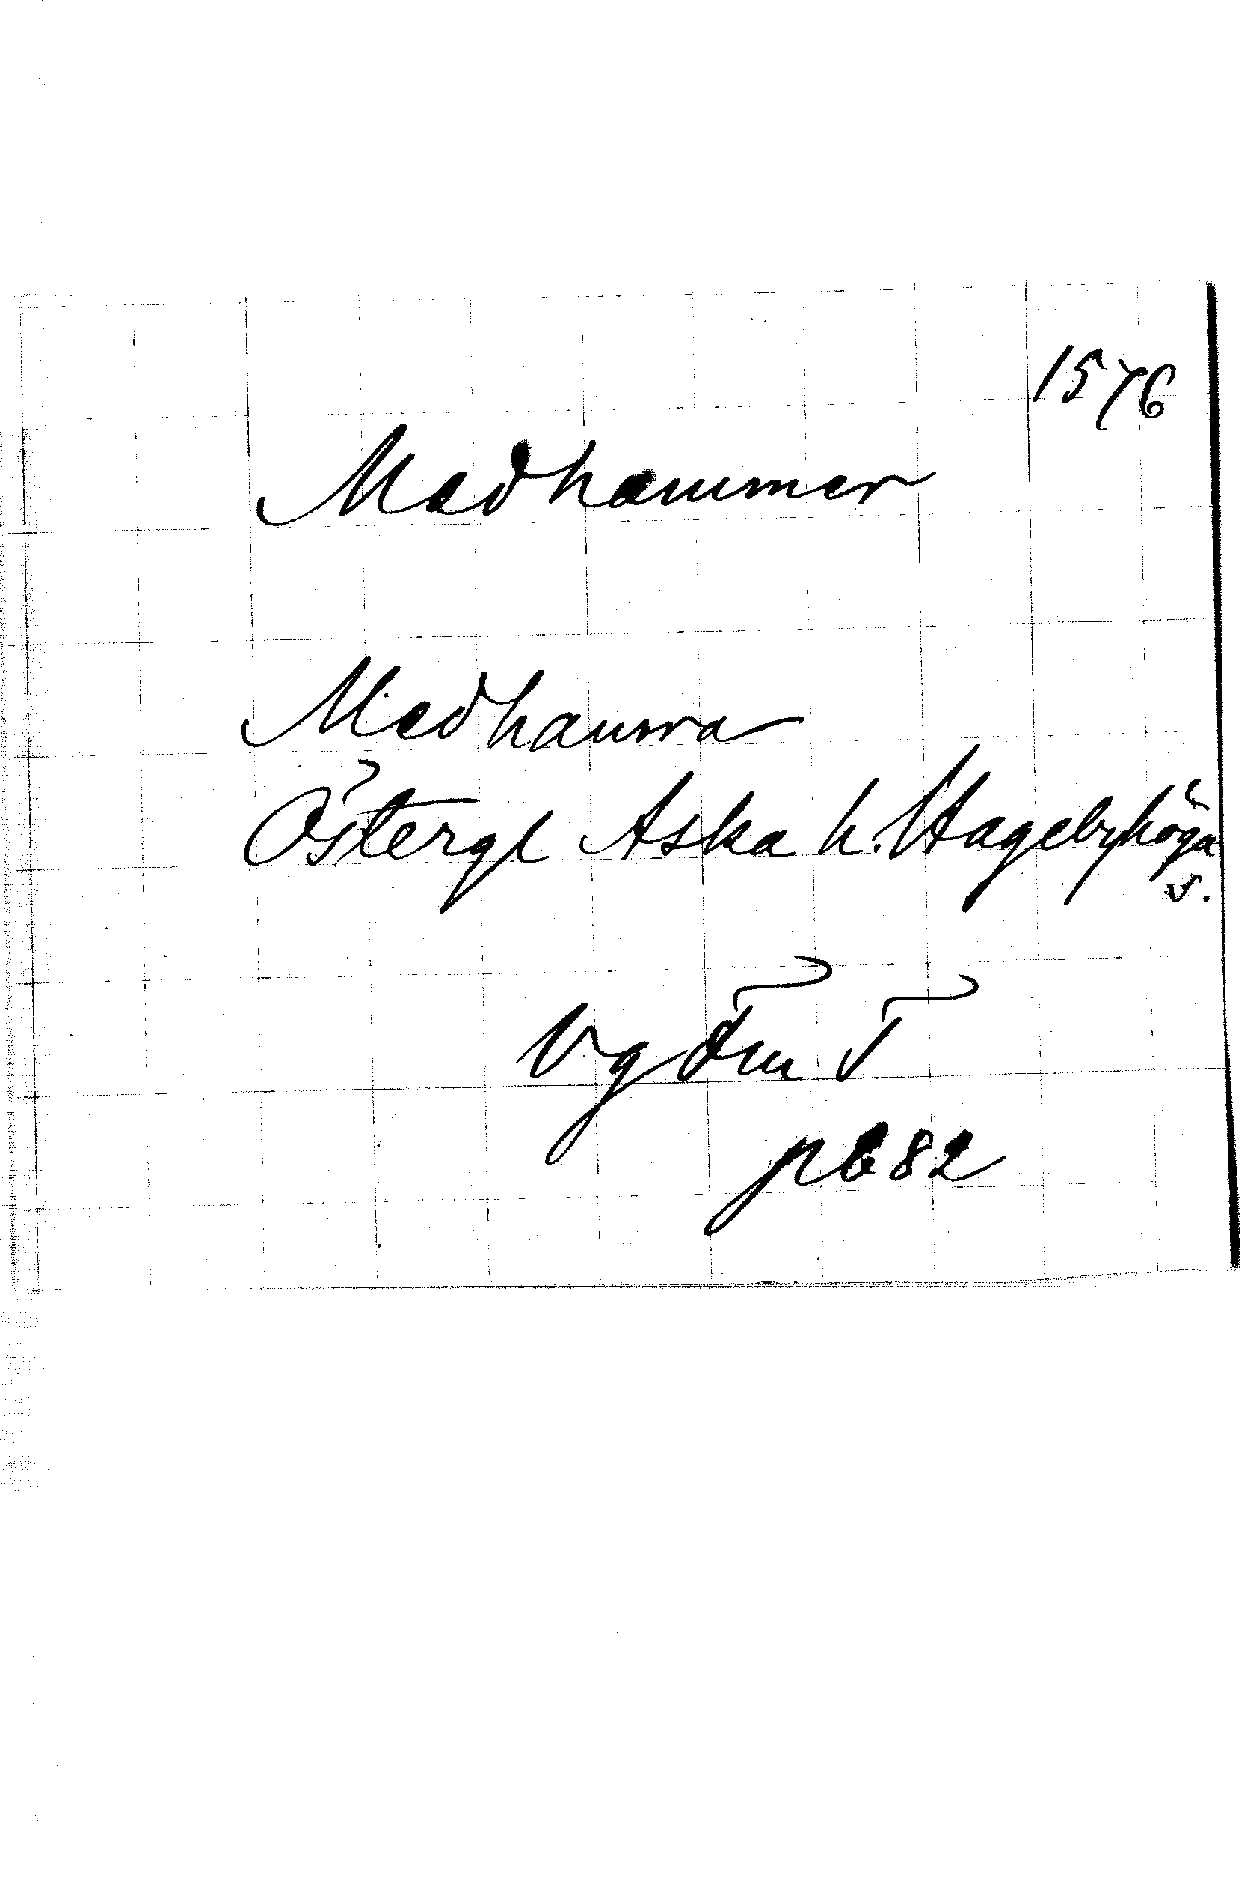 1576
Medhammer
Medhamra
Östergl Aska h. Hagebyhöga
s.
Vg Fru T
p 682